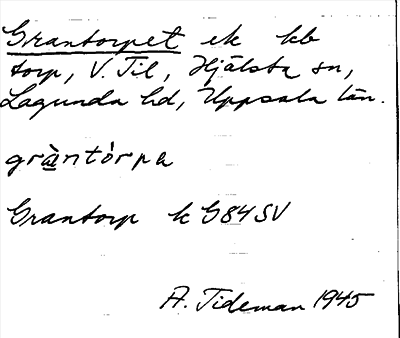 Grantorpet ek kb
torp, V. Til, Hjälsta sn,
Lagunda hd, Uppsala län.
gràntòrpa
Grantorp k G84SV
A. Tideman 1945